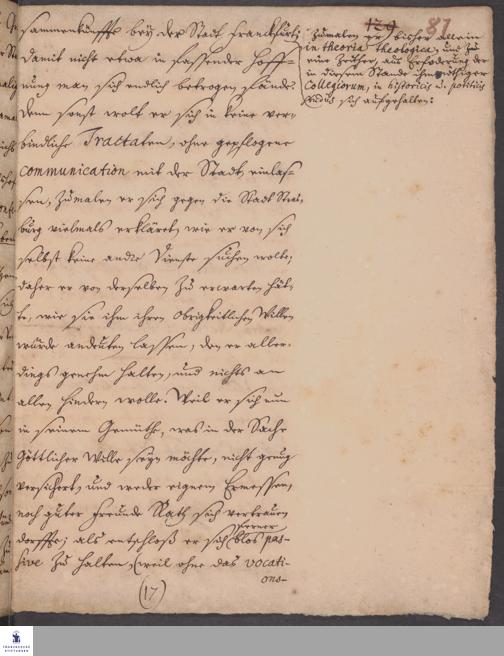 129 81
sammenkunfft bey der Stadt Franckfurth
damit nicht etwa in fassender Hoff-
nung man sich endlich betrogen fände.
Denn sonst wolt er sich in keine ver-
bindliche Tractaten, ohne gepflogene
communication mit der Stadt, einlas-
sen, zumalen er sich gegen die Stadt Stras-
burg vielmals erkläret, wie er von sich
selbst keine andre Dienste suchen wolte,
daher er von derselben zu erwarten hät-
te, wie sie ihm ihren Obrigkeitlichen Willen
würde andeuten lassen, den er aller-
dings genehm halten, und nichts an
allen hindern wolle. Weil er sich nun
in seinem Gemüthe, was in der Sache
Göttlicher Wille seyn möchte, nicht gnug
versichert, und weder eignem Ermessen,
noch guter Freunde Rath sich vertrauen
dorffte; als entschloß er sich ferner blos pas-
sive zu halten, (weil ohne das vocati-
ons-
(17)
zumalen er bisher allein
in theoria theologica, und zu
einer Zeither, aus Erforderung der
in diesem Stande ihm nöthiger
Collegiorum, in historicis u. politicis
studiis sich aufgehalten:
FRANCKESCHE
STIFTUNGEN